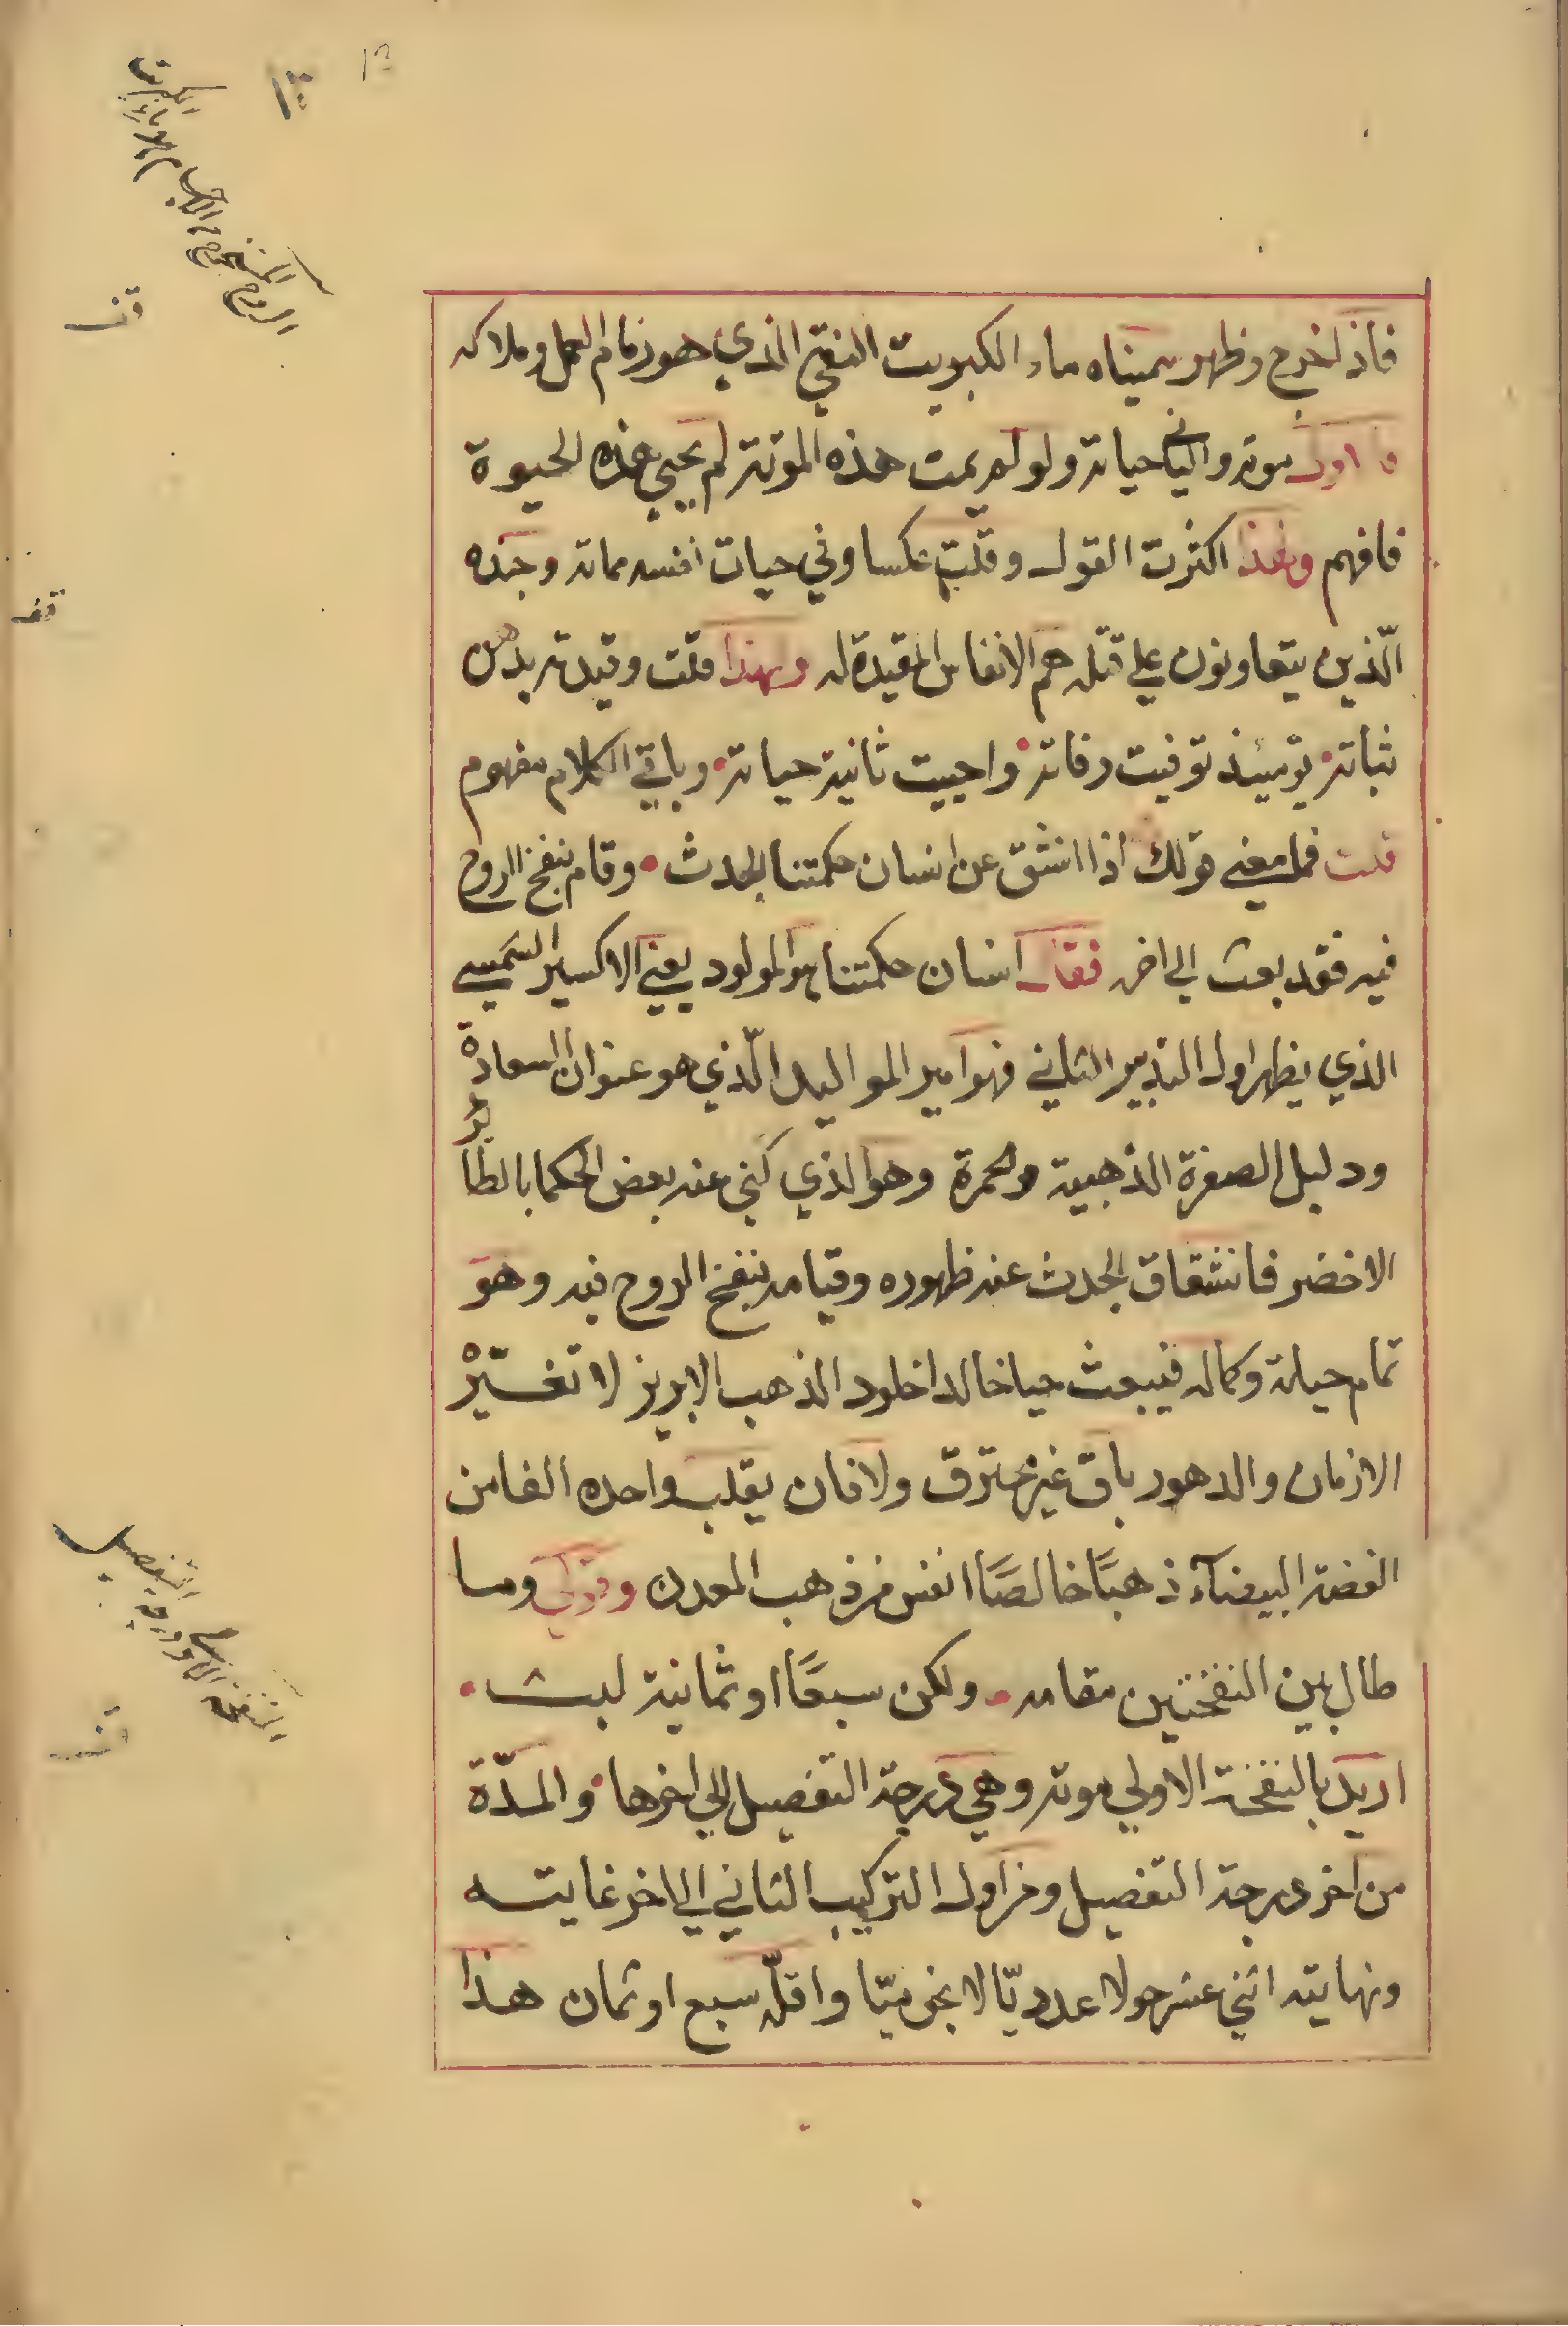 فاذا خرج وظهر سميناه ماء الكبريت النقي الذي هو زمام العمل وملاكه
موته والثاني حياته ولو لم يمت هذه الموتة لم يحيى هذه الحيوة
فافهم ولهذا اكثرت القول وقلت عكسا وفي حيات نفسه مماته وجنده
الّذين يتعاونون على قتله هم الانفاس المقيدة له ولهذا قلت وقيدته بدهن
ثباته يومئذ توفيت وفاته واحييت ثانية حياته وباقي الكلام مفهوم
قلت فما معنى قولك اذا انشق عن انسان حكمتنا الجدث وقام بنفخ الروح
فيه فقد بعث الى اخر فقال انسان حكمتنا هو المولود يعني الاكسير الشمسي
الذي يظهر اول التدبير الثاني فهو امير المواليد الّذي هو عنوان السعادة
ودليل الصفرة الذهبية والحمرة وهو الذي كنى عنه بعض الحكما بالطائر
الاخضر فانشقاق الجدث عنه ظهوره وقيامه بنفخ الروح فيه وهو
تمام حياته وكماله فيبعث حيا خالدا خلود الذهب الابريز لا تغيّره
الازمان والدهور باق غير محترق ولا فان يقلب واحده الفا من
الفضة البيضآء ذهبًا خالصًا انفس من ذهب المعدن وقولي وما
طال بين النفختين مقامه ولكن سبعًا او ثمانية لبث
اريد بالنفخة الاولى موته وهي درجة التفصيل الى اخرها والمدّة
من اخر درجة التفصيل ومن اول التركيب الثاني الى اخر غايته
ونهايته اثني عشر حولا عدديّا لا نجوميّا واقلّه سبع او ثمان هذا